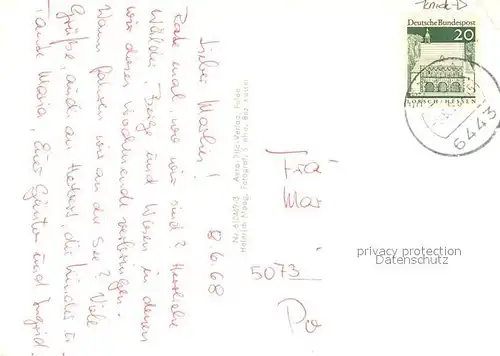 Knick-D
Deutsche Bundespost
20
LORSCH/HESSEN
6443
8.6.68
Lieber Markus!
Rate mal, wo wir sind? Herrliche
Wälder, Berge und Wiesen in denen
wir dieses Wochenende verbringen.
Wann fahren wir an die See? Viele
Grüße, auch an Herbert, die Kinder u.
Tante Maria, Eure Günter und Ingrid
Aero-Bild-Verlag, Fulda
Heinrich Maag, Fotograf,
Frä
Mar
5073
Po
privacy protection
Datenschutz